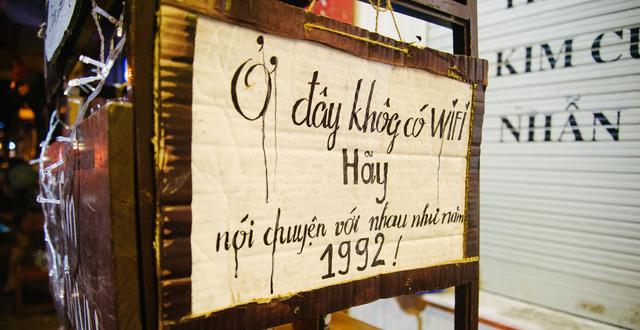 Ở đây khôg có WiFi
Hãy
nói chuyện với nhau như năm
1992 !
KIM
NHẪN